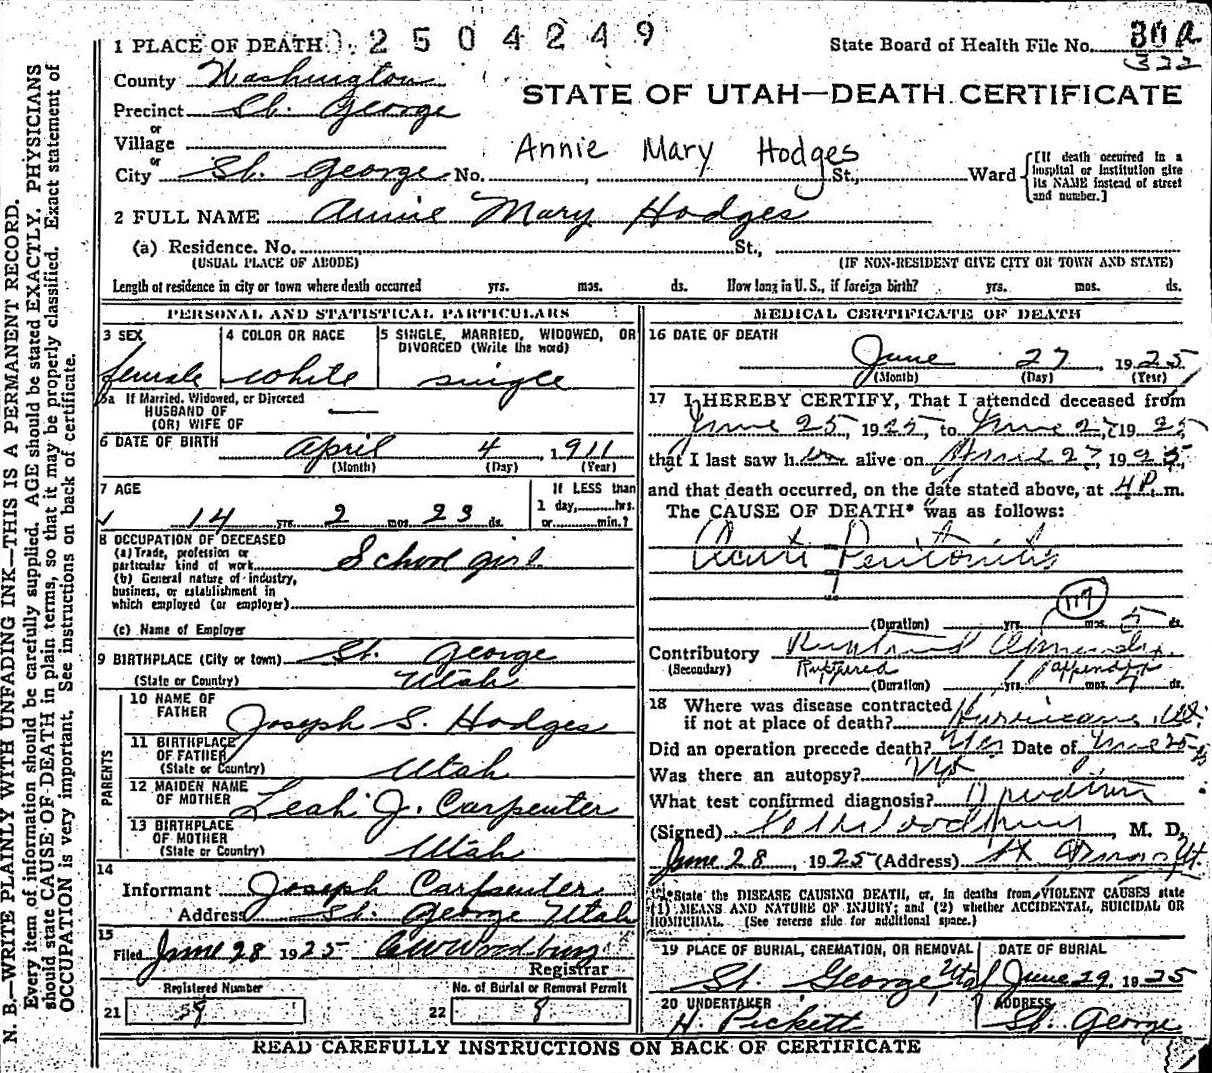 1 PLACE OF DEATH 2504249 State Board of Health File No. 30 a
322
County Washington
STATE OF UTAH—DEATH CERTIFICATE
Precinct St. George
or
Village
or
Annie Mary Hodges
City St. George No. , St., Ward
[If death occurred in a hospital or institution give its NAME instead of street and number.]
2 FULL NAME Annie Mary Hodges
(a) Residence. No. St.,
(USUAL PLACE OF ABODE) (IF NON-RESIDENT GIVE CITY OR TOWN AND STATE)
Length of residence in city or town where death occurred yrs. mos. ds. How long in U. S., if foreign birth? yrs. mos. ds.
PERSONAL AND STATISTICAL PARTICULARS
3 SEX 4 COLOR OR RACE 5 SINGLE, MARRIED, WIDOWED, OR
DIVORCED (Write the word)
female white single
5a If Married, Widowed, or Divorced
HUSBAND OF
(OR) WIFE OF
6 DATE OF BIRTH April 4, 1911
(Month) (Day) (Year)
7 AGE If LESS than
1 day, hrs.
14 yrs. 2 mos. 23 ds. or min.?
8 OCCUPATION OF DECEASED
(a) Trade, profession or
particular kind of work School girl
(b) General nature of industry,
business, or establishment in
which employed (or employer)
(c) Name of Employer
9 BIRTHPLACE (City or town) St. George
(State or Country) Utah
PARENTS
10 NAME OF
FATHER Joseph S. Hodges
11 BIRTHPLACE
OF FATHER
(State or Country) Utah
12 MAIDEN NAME
OF MOTHER Leah J. Carpenter
13 BIRTHPLACE
OF MOTHER
(State or Country) Utah
14
Informant Joseph Carpenter
Address St. George Utah
15
Filed June 28 1925 Woodbury
Registrar
Registered Number No. of Burial or Removal Permit
21 59 22 9
MEDICAL CERTIFICATE OF DEATH
16 DATE OF DEATH
June 27, 1925
(Month) (Day) (Year)
17 I HEREBY CERTIFY, That I attended deceased from
June 25, 1925, to June 27, 1925,
that I last saw her alive on June 27, 1925,
and that death occurred, on the date stated above, at 4 P. m.
The CAUSE OF DEATH* was as follows:
Acute Peritonitis
117
(Duration) yrs. mos. 5 ds.
Contributory Ruptured Appendix
(Secondary) Ruptured appendix
(Duration) yrs. mos. ds.
18 Where was disease contracted
if not at place of death? Hurricane, Ut.
Did an operation precede death? Yes Date of June 25
Was there an autopsy?
What test confirmed diagnosis? Operation
(Signed) Woodbury, M. D.
June 28, 1925 (Address) St George Ut.
*State the DISEASE CAUSING DEATH, or, in deaths from VIOLENT CAUSES state
(1) MEANS AND NATURE OF INJURY; and (2) whether ACCIDENTAL, SUICIDAL OR
HOMICIDAL. (See reverse side for additional space.)
19 PLACE OF BURIAL, CREMATION, OR REMOVAL DATE OF BURIAL
St. George, Utah June 29, 1925
20 UNDERTAKER ADDRESS
H. Pickett St. George
READ CAREFULLY INSTRUCTIONS ON BACK OF CERTIFICATE
N. B.—WRITE PLAINLY WITH UNFADING INK—THIS IS A PERMANENT RECORD.
Every item of information should be carefully supplied. AGE should be stated EXACTLY. PHYSICIANS
should state CAUSE OF DEATH in plain terms, so that it may be properly classified. Exact statement of
OCCUPATION is very important. See instructions on back of certificate.